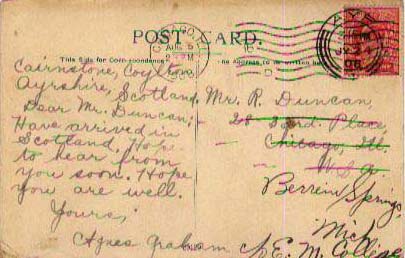 POST CARD.
This Side for Correspondence.
The Address to be written here
Cairnstone, Coylton
Ayrshire, Scotland.
Dear Mr. Duncan:
Have arrived in
Scotland. Hope
to hear from
you soon. Hope
you are well.
Yours,
Agnes Graham
Mr. R. Duncan,
28 33rd. Place,
Chicago, Ill.
U.S.A.
Berrien Springs,
Mich.
c/o E. M. College
AYR
CHICAGO, ILL.